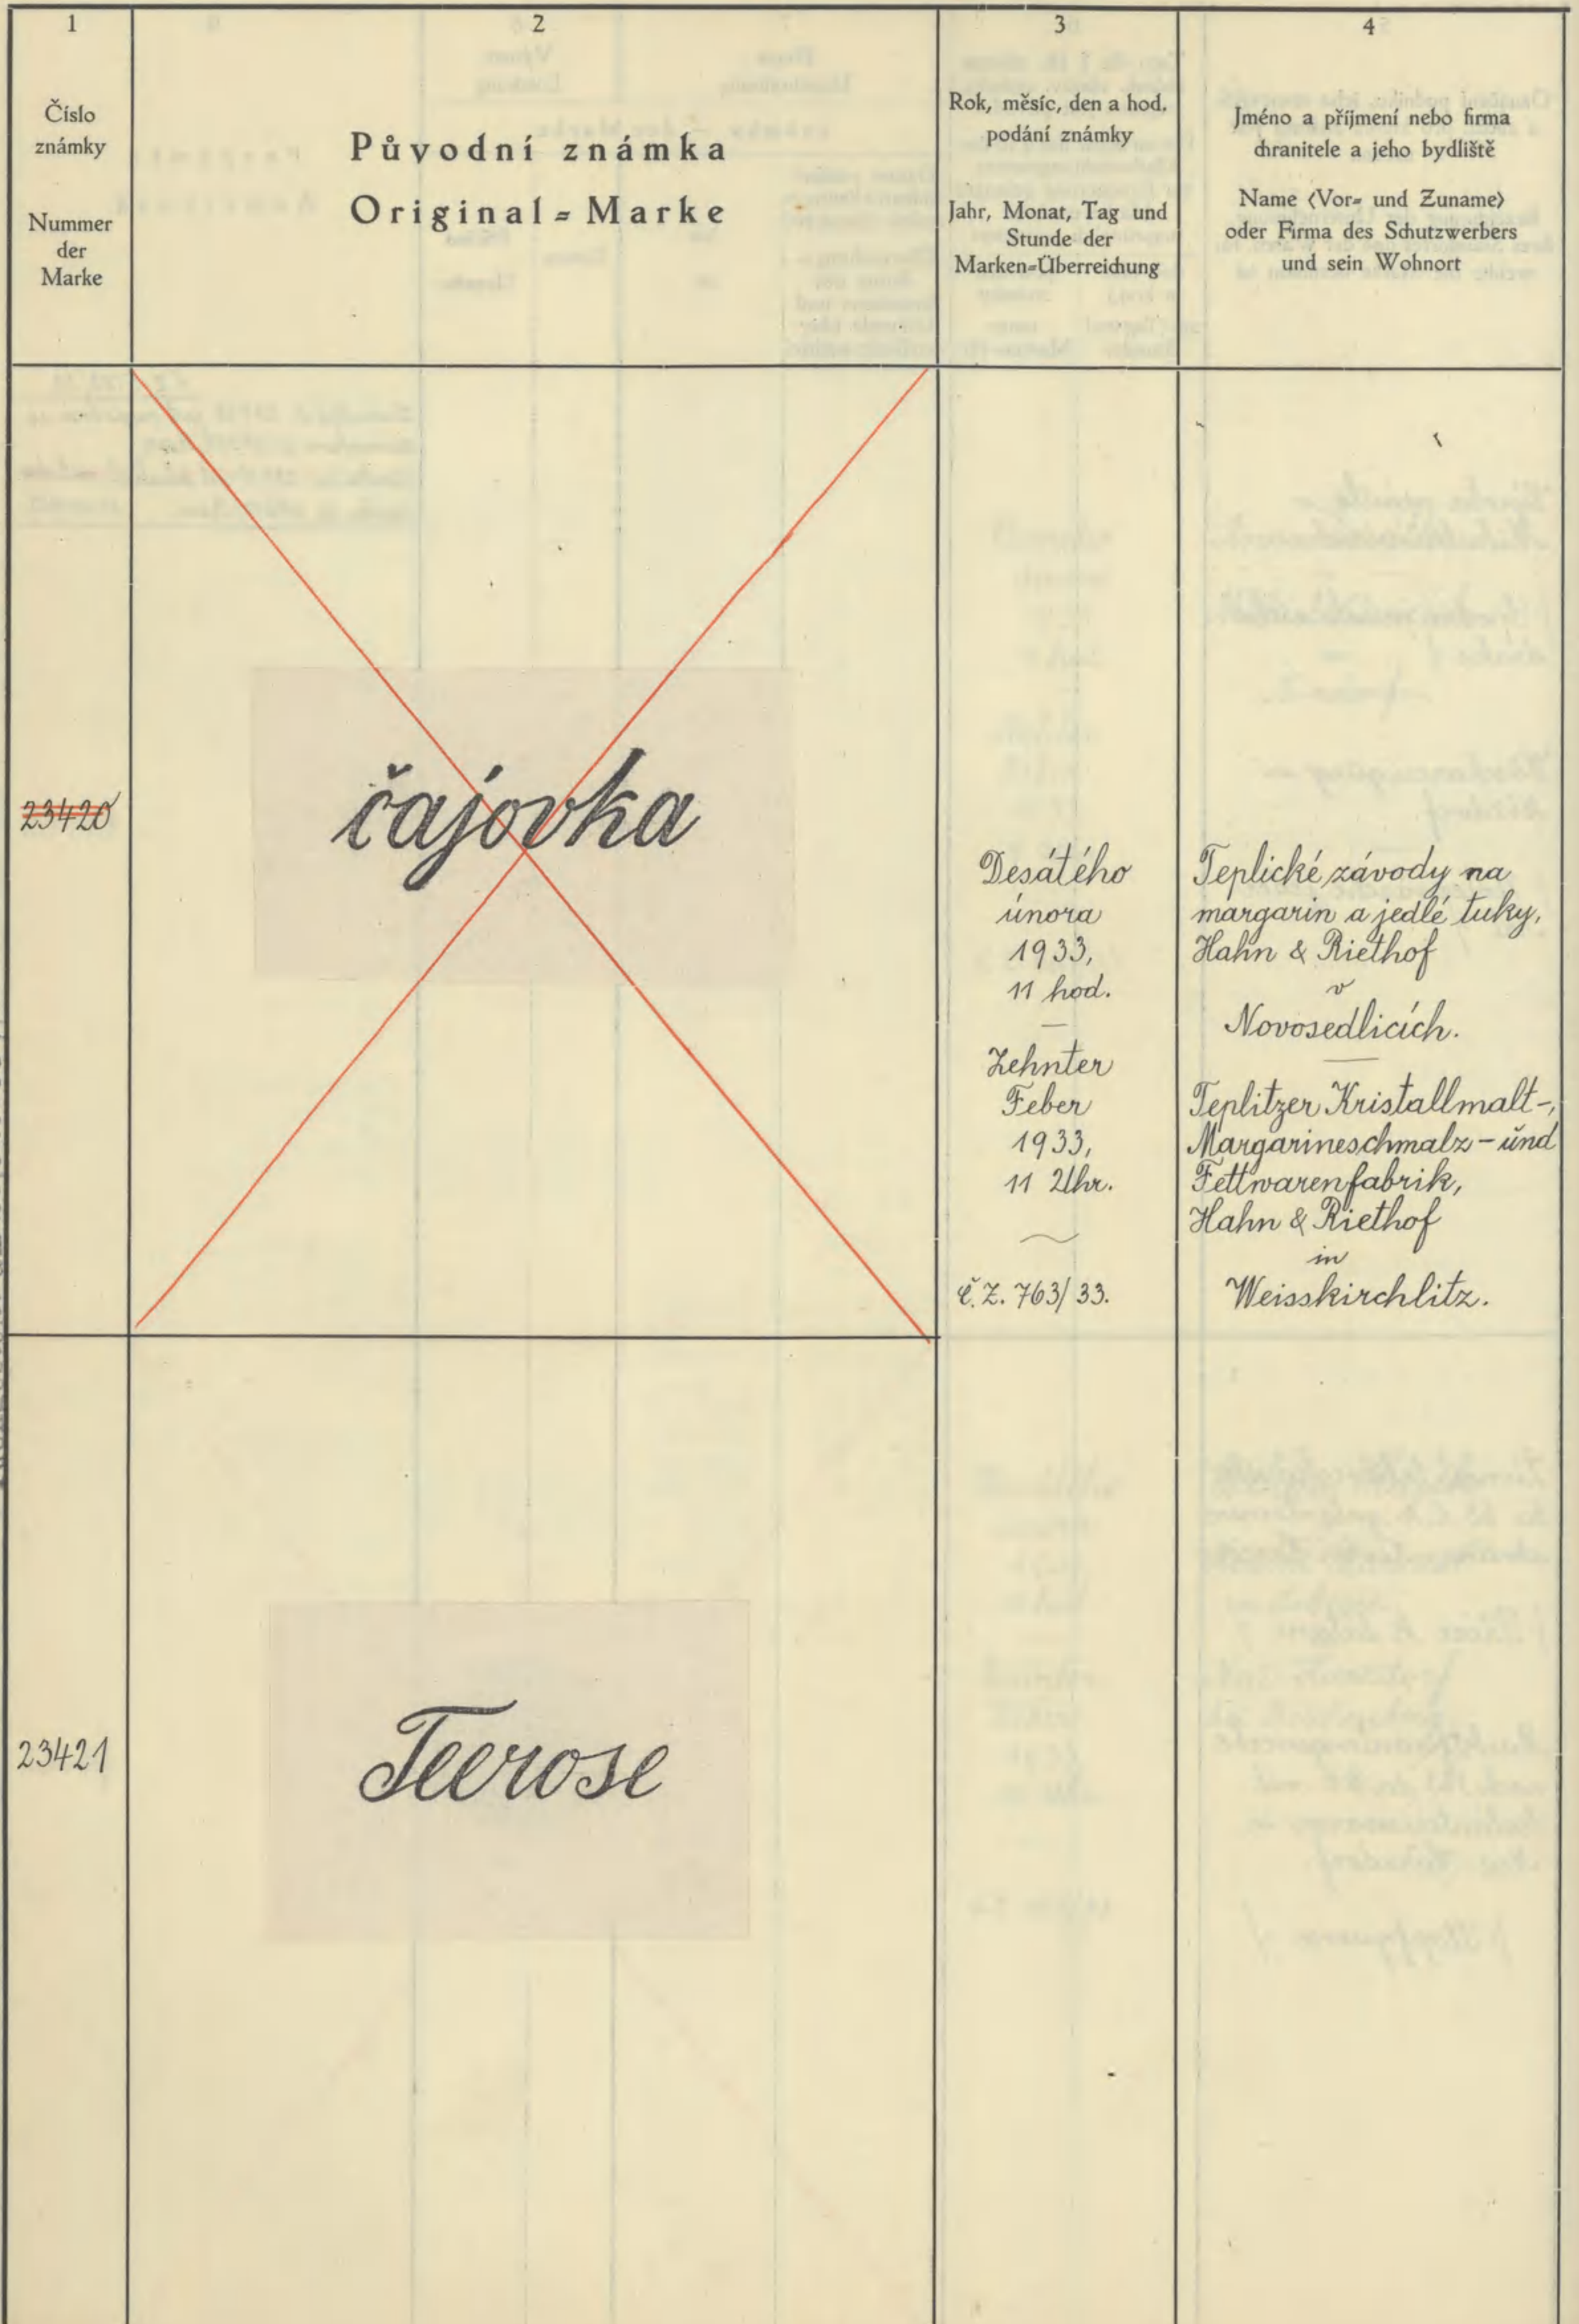 1
Číslo
známky
Nummer
der
Marke
2
Původní známka
Original=Marke
3
Rok, měsíc, den a hod.
podání známky
Jahr, Monat, Tag und
Stunde der
Marken=Überreichung
4
Jméno a příjmení nebo firma
chranitele a jeho bydliště
Name (Vor= und Zuname)
oder Firma des Schutzwerbers
und sein Wohnort
23420
čajovka
Desátého
února
1933,
11 hod.
—
Zehnter
Feber
1933,
11 Uhr.
č. Z. 763/33.
Teplické závody na
margarin a jedlé tuky,
Hahn & Riethof
v
Novosedlicích.
—
Teplitzer Kristallmalt-,
Margarineschmalz- und
Fettwarenfabrik,
Hahn & Riethof
in
Weisskirchlitz.
23421
Teerose